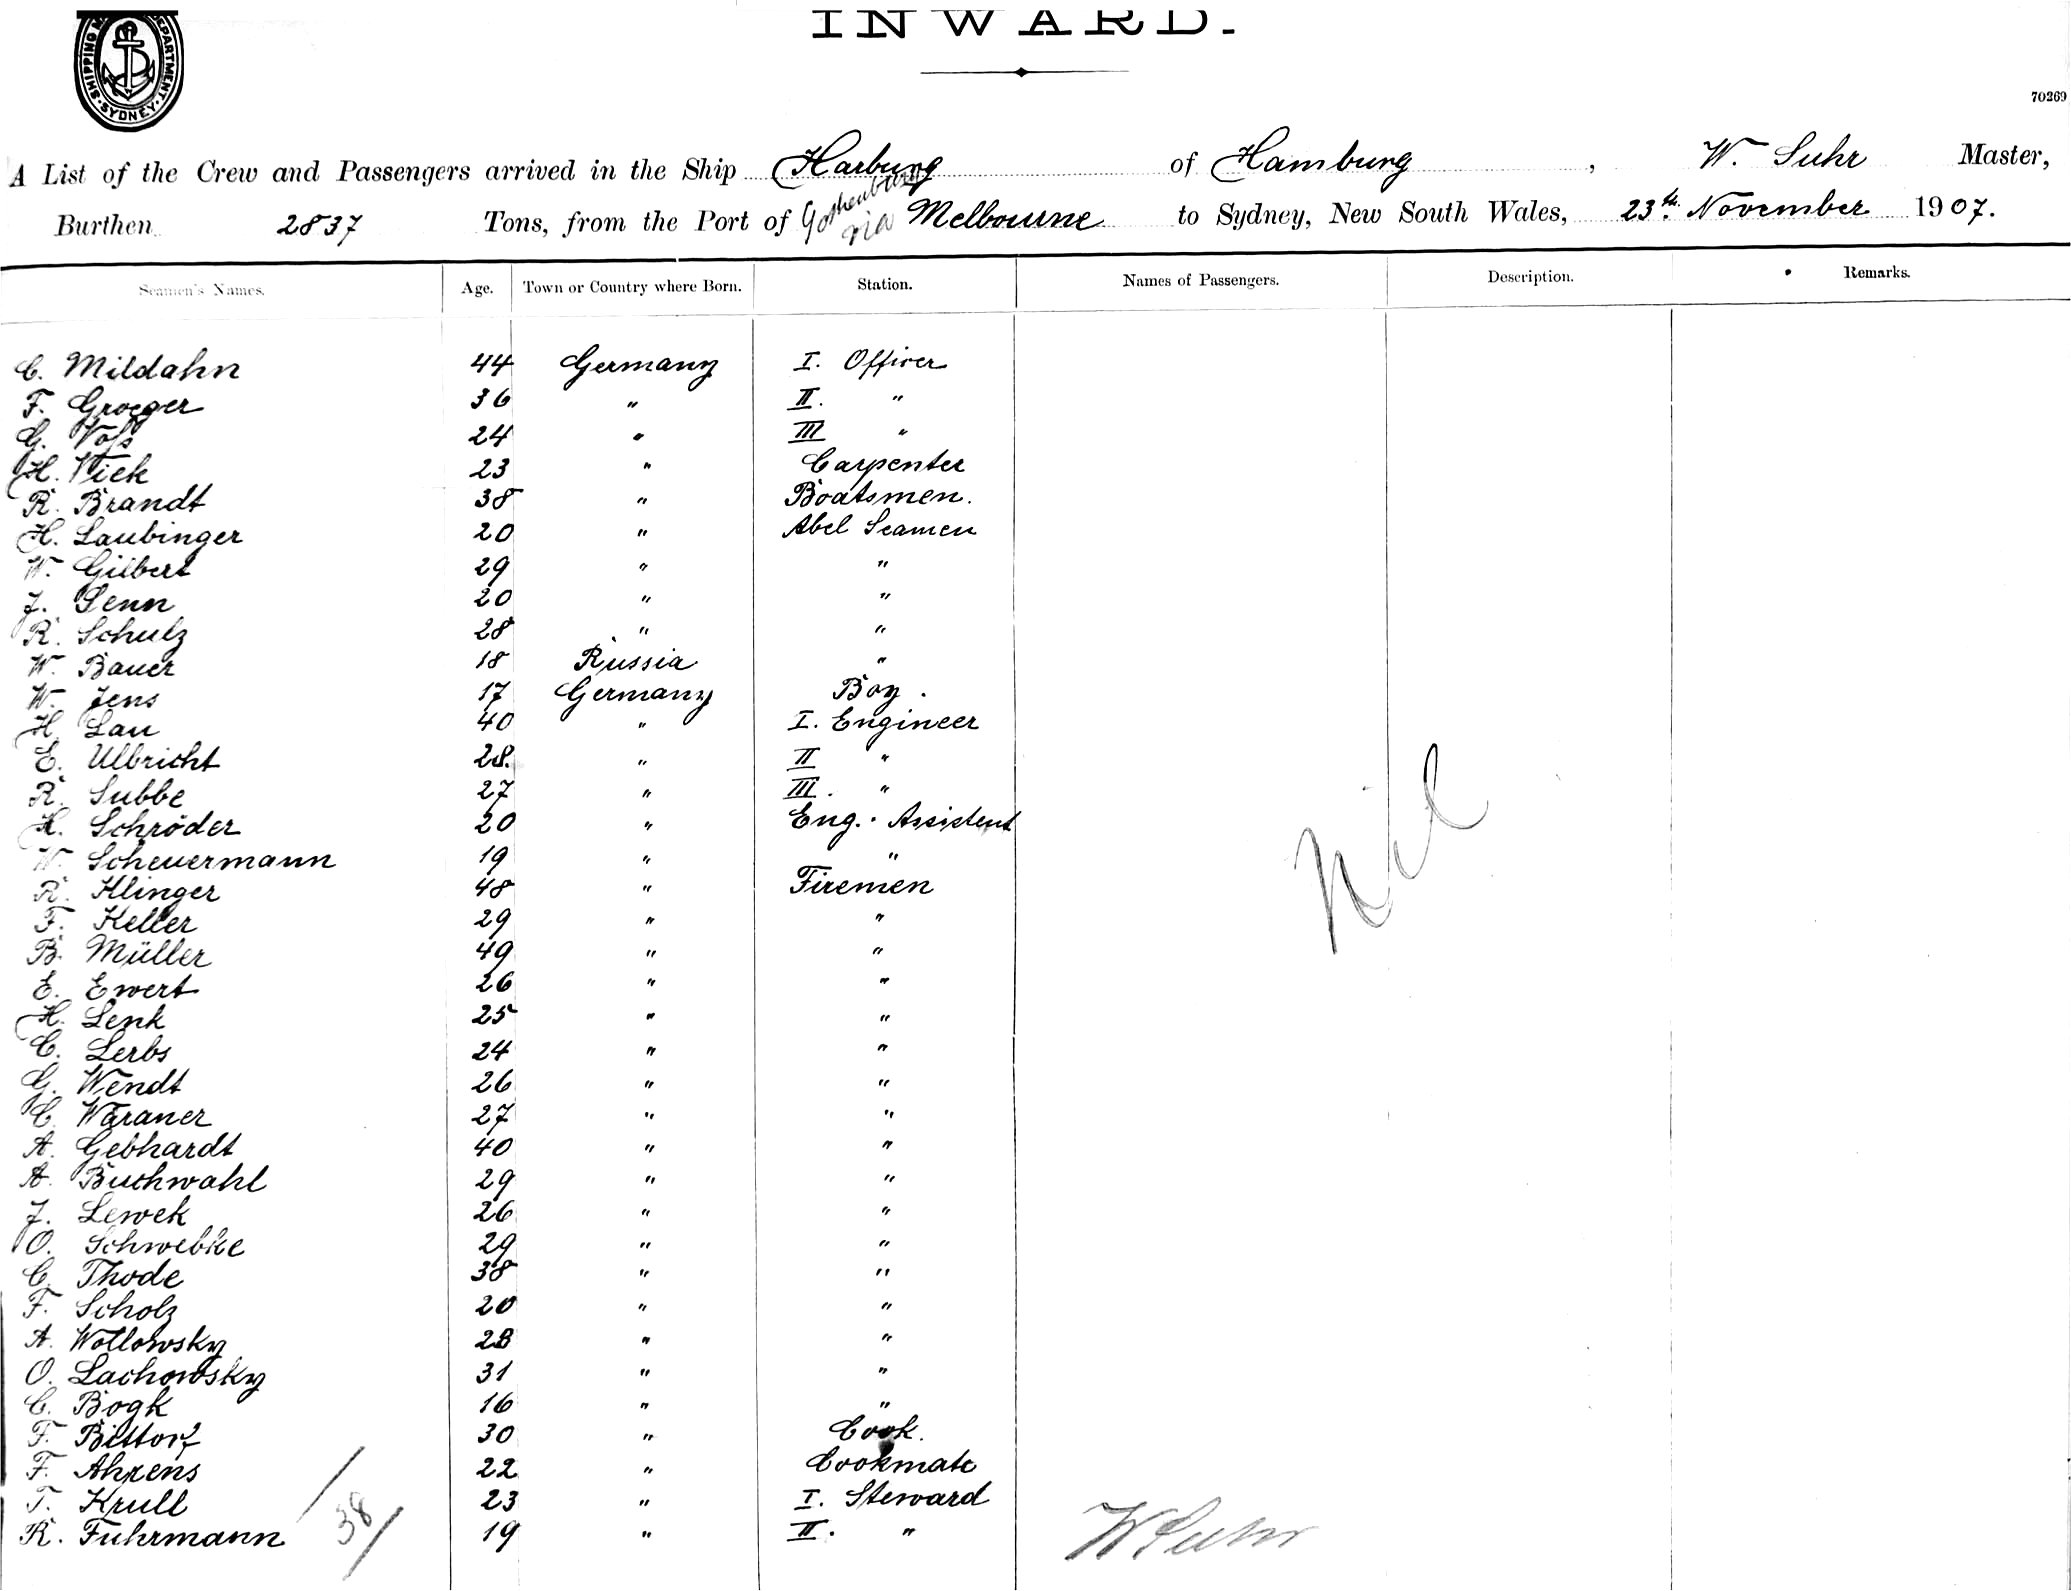 SHIPPING DEPARTMENT. SYDNEY.
INWARD.
70269
A List of the Crew and Passengers arrived in the Ship Harburg of Hamburg, W. Suhr Master,
Burthen 2837 Tons, from the Port of Gothenburg via Melbourne to Sydney, New South Wales, 23th November 1907.
Seamen's Names. Age. Town or Country where Born. Station. Names of Passengers. Description. Remarks.
C. Mildahn 44 Germany I. Officer
F. Groeger 36 " II. "
G. Voſs 24 " III "
H. Wiek 23 " Carpenter
R. Brandt 38 " Boatsmen.
H. Laubinger 20 " Abel Seamen
W. Gilbert 29 " "
J. Senn 20 " "
R. Schulz 28 " "
W. Bauer 18 Russia "
W. Jens 17 Germany Boy.
H. Lau 40 " I. Engineer
E. Ulbricht 28. " II "
R. Subbe 27 " III. "
H. Schröder 20 " Eng. Assistent
W. Scheuermann 19 " "
R. Klinger 48 " Firemen
F. Keller 29 " "
B. Müller 49 " "
E. Ewert 26 " "
H. Lenk 25 " "
C. Lerbs 24 " "
G. Wendt 26 " "
C. Waraner 27 " "
A. Gebhardt 40 " "
A. Buchwahl 29 " "
J. Lewek 26 " "
O. Schwebke 29 " "
C. Thode 38 " "
F. Scholz 20 " "
A. Wollowsky 28 " "
O. Lachowsky 31 " "
C. Bogk 16 " "
F. Bittorf 30 " Cook.
F. Ahrens 22 " Cookmate
T. Krull 23 " I. Steward
R. Fuhrmann 19 " II. "
Nil
38
W Suhr